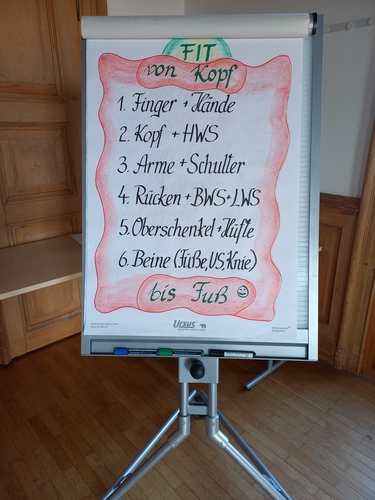 FIT
von Kopf
1. Finger + Hände
2. Kopf + HWS
3. Arme + Schulter
4. Rücken + BWS + LWS
5. Oberschenkel + Hüfte
6. Beine (Füße, US, Knie)
bis Fuß ☺
URSUS